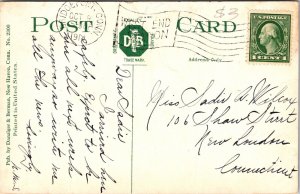 POST CARD
MIDDLETOWN
OCT
$3
D&B
TRADE MARK
Address Only.
1 CENT 1
Pub. by Danziger & Berman, New Haven, Conn. No. 2500
Printed in United States
Dear Sadie
Arrived here
safely. Expect to be
here all next week
anyway. Write me
all the news
Miss Sadie A. Wilcox
106 Shaw Street
New London
Connecticut